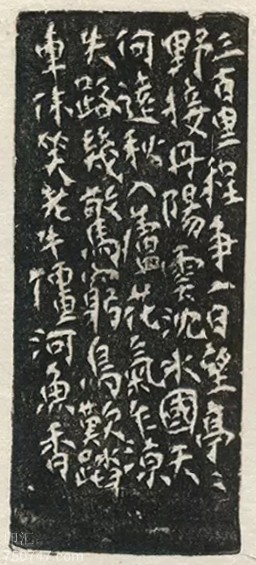 三百里程争一日望亭亭
野接丹阳云沈水国天
何远秋入芦花气乍凉
失路几惊穷鸟叹踏
车休笑老牛僵河鱼香
汇
780747.com